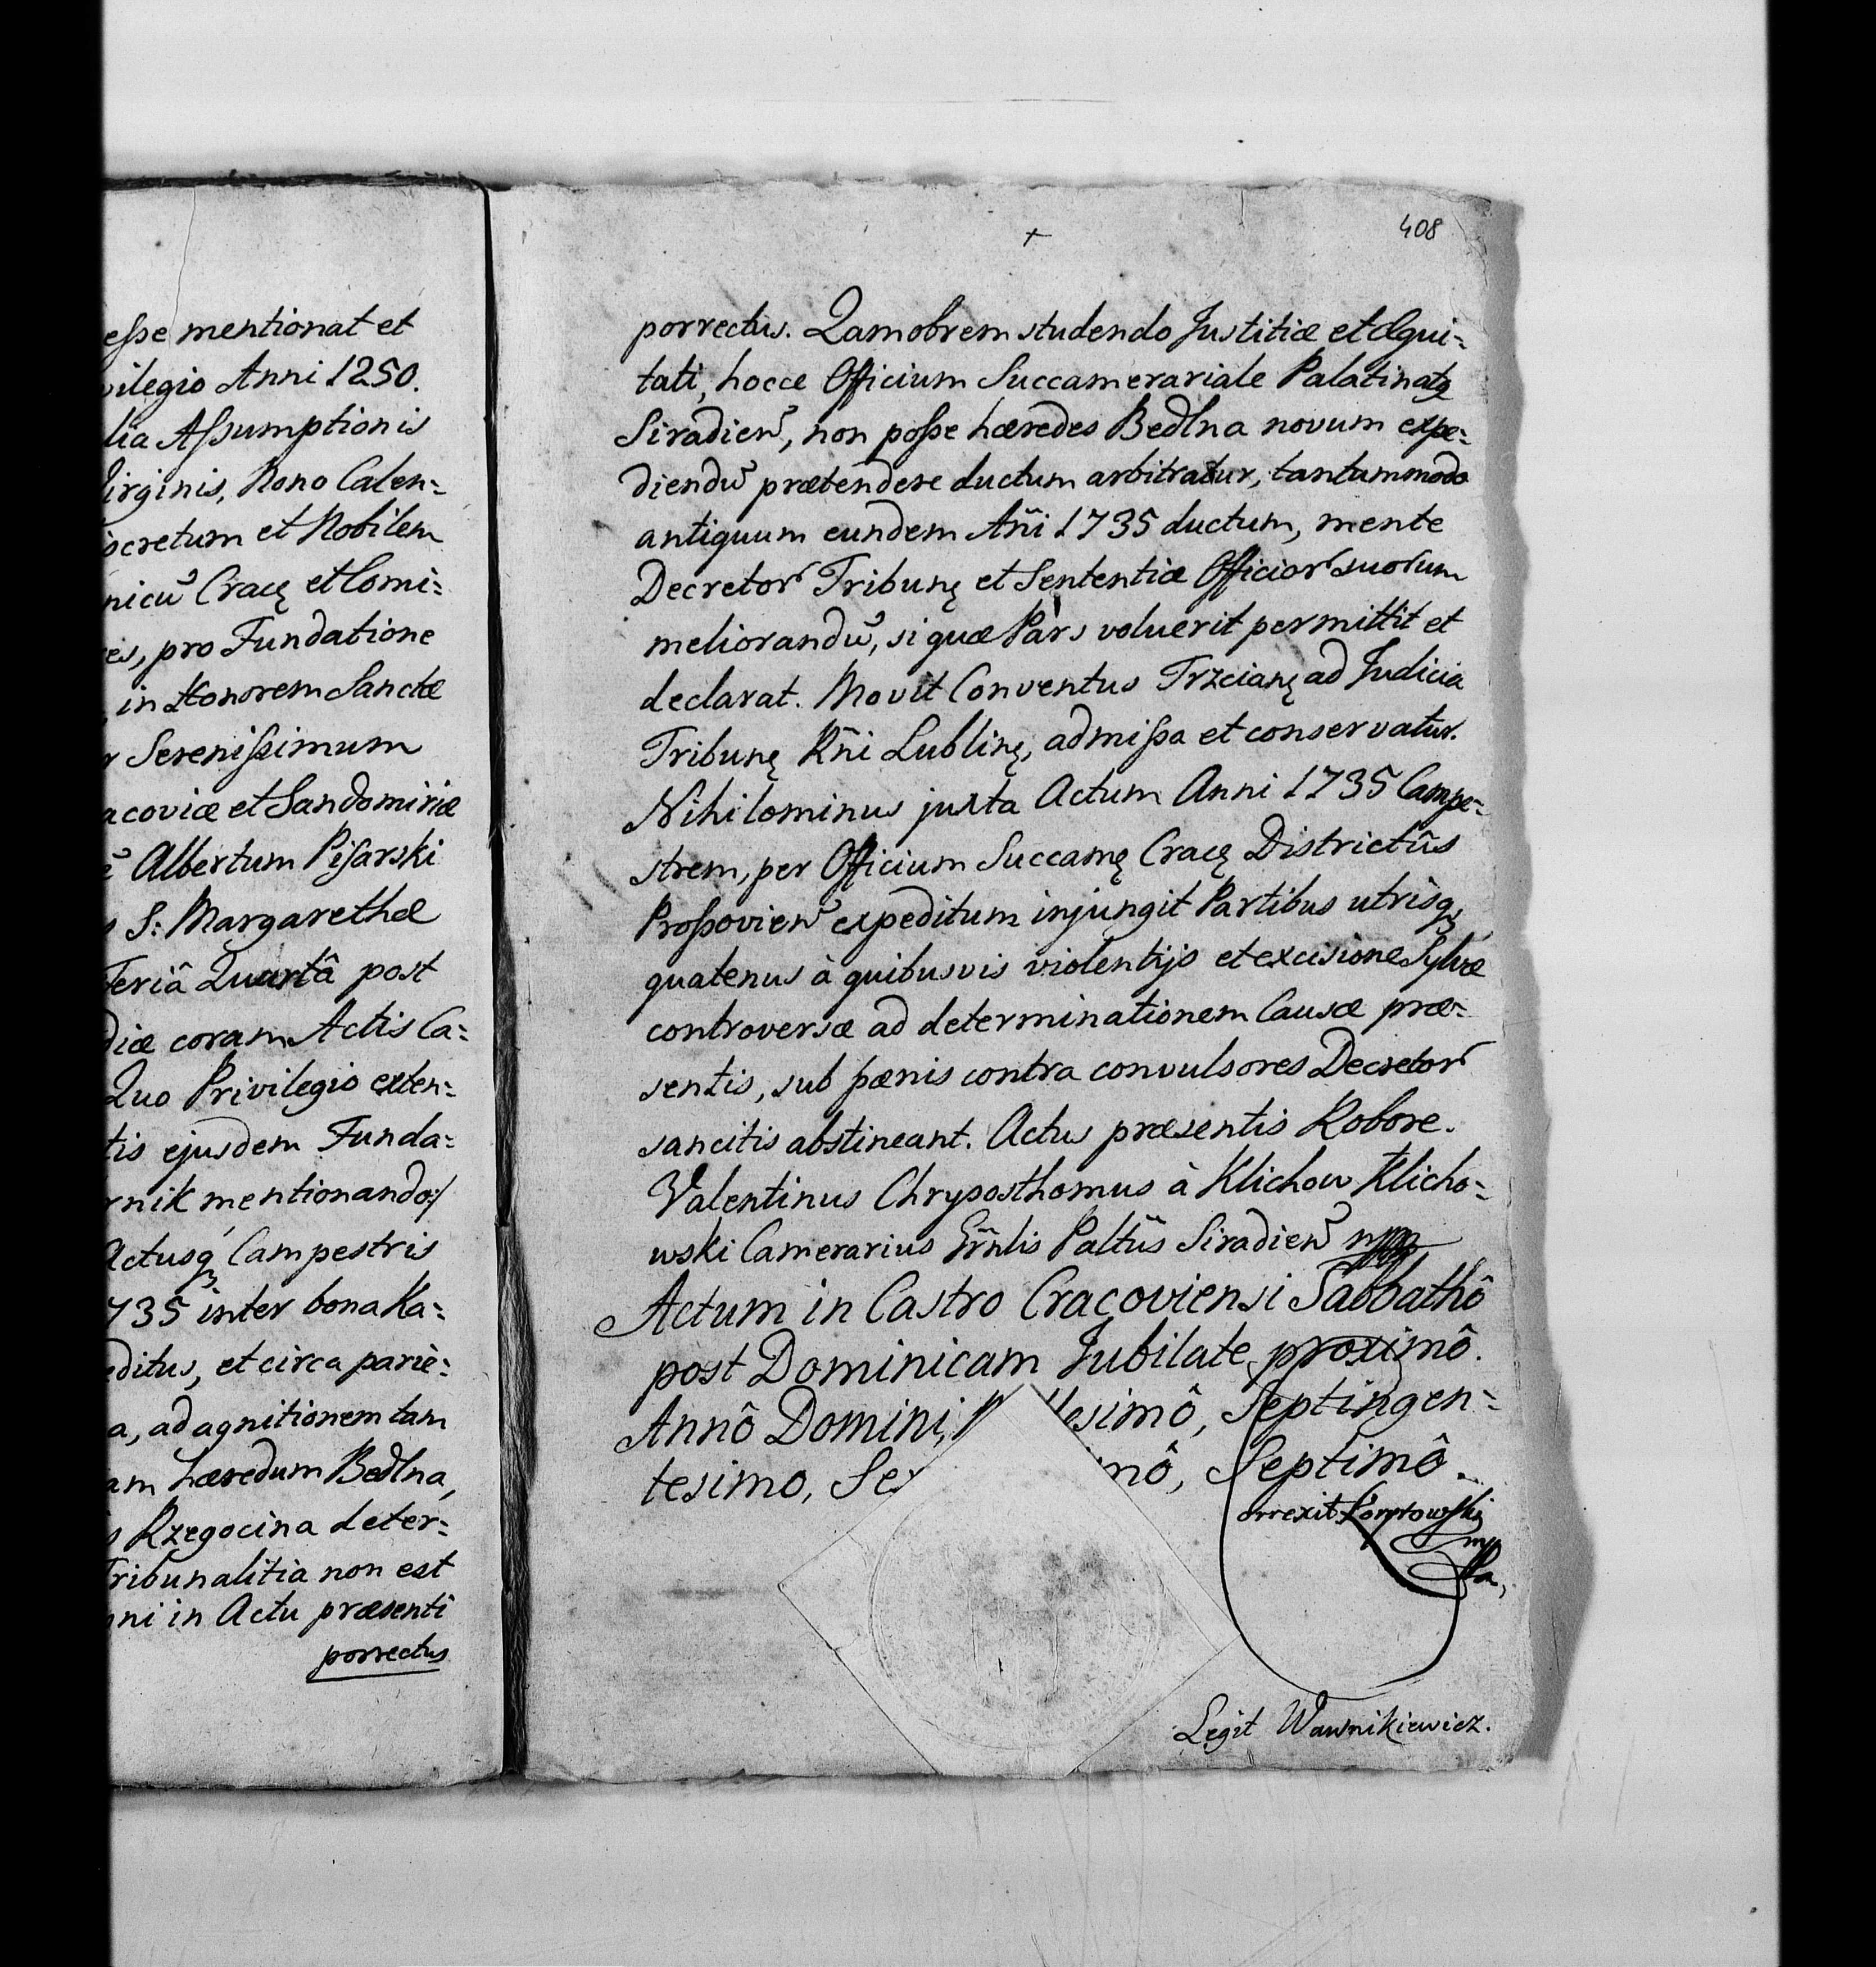 esse mentionat et
vilegio Anni 1250.
lia Assumptionis
Virginis, Nono Calen=
ocretum et Nobilem
nicũ Cracę et Comi=
es, pro Fundatione
in Honorem Sanctæ
r Serenissimum
acoviæ et Sandomiriæ
Albertum Pisarski
S: Margarethæ
Feriâ Quartâ post
diæ coram Actis Ca=
Quo Privilegio exten=
tis ejusdem Funda=
rnik mentionando/
Actusq₃ Campestris
735 inter bona Ka=
editus, et circa parie=
a, ad agnitionem tam
am hæredum Bedlna,
Rzegocina deter=
Tribunalitia non est
nni in Actu præsenti
porrectus
408
porrectus. Qamobrem studendo Justitiæ et Æqui=
tati, hocce Officium Succamerariale Palatinatę
Siradien̄, non posse hæredes Bedlna novum expe=
diendũ prætendere ductum arbitratur, tantummodo
antiquum eundem Añi 1735 ductum, mente
Decretor̄ Tribunę et Sententiæ Officior̄ suorum
meliorandũ, si quæ Pars voluerit permittit et
declarat. Movit Conventus Trzcianę ad Judicia
Tribunę Rñi Lublinę, admissa et conservatur.
Nihilominus juxta Actum Anni 1735 Campe=
strem, per Officium Succamę Cracę Districtûs
Prossovien̄ expeditum injungit Partibus utrisq₃
quatenus à quibusvis violentijs et excisione Sylvæ
controversæ ad determinationem Causæ præ=
sentis, sub pænis contra convulsores Decretor̄
sancitis abstineant. Actus præsentis Robore.
Valentinus Chrysosthomus à Klichow Klicho=
wski Camerarius Grñlis Paltũs Siradien̄ mpp
Actum in Castro Cracoviensi Sabbathô
post Dominicam Jubilate, proximô.
Annô Domini, M lesimô, Septingen=
tesimo, Sex mô, Septimô.
orrexit
mp
Legit Wawnikiewicz.